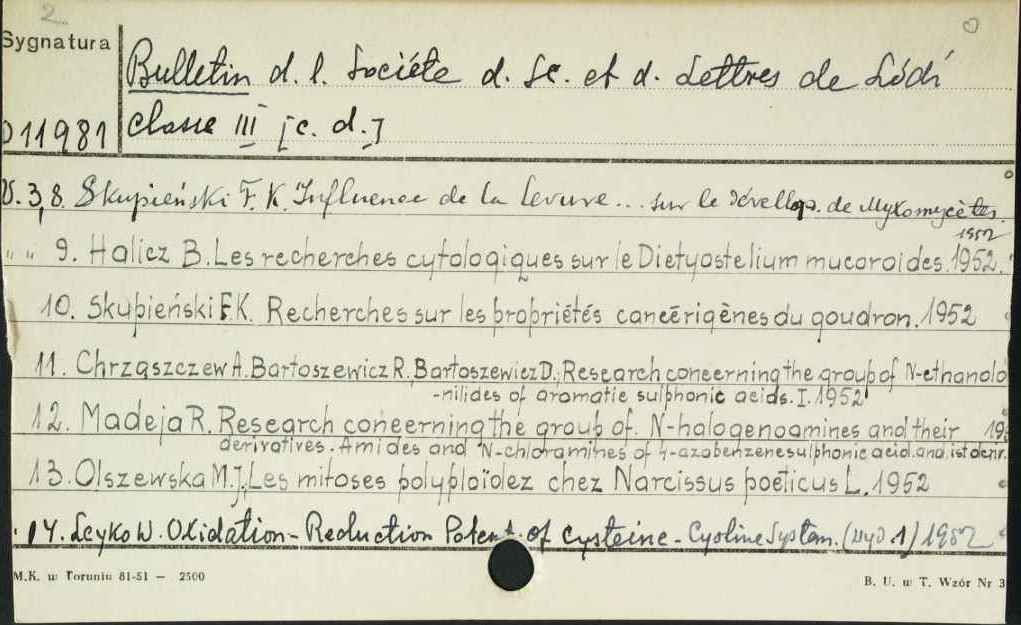 2
Sygnatura
Bulletin d. l. Sociéte d. Sc. et d. Lettres de Łódź
D11981
Classe III [c. d.]
V. 3, 8. Skupieński F. K. Influence de la Levure... sur le dévellop. de Myxomycètes.
1952
" " 9. Halicz B. Les recherches cytologiques sur le Dictyostelium mucoroides. 1952.
10. Skupieński F.K. Recherches sur les propriétés cancérigènes du goudron. 1952
11. Chrząszczew A. Bartoszewicz R., Bartoszewicz D., Research concerning the group of N-ethanolo
-nilides of aromatic sulphonic acids. I. 1952
12. Madeja R. Research concerning the group of. N-halogenoamines and their 19
derivatives. Amides and N-chloramines of 4-azobenzenesulphonic acid and ist
13. Olszewska M. J. Les mitoses polyploïdez chez Narcissus poëticus L. 1952
14. Leyko W. Oxidation-Reduction Potent. of cysteine-Cystine System. 1952
M.K. w Toruniu 81-51 — 2500
B. U. w T. Wzór Nr 3